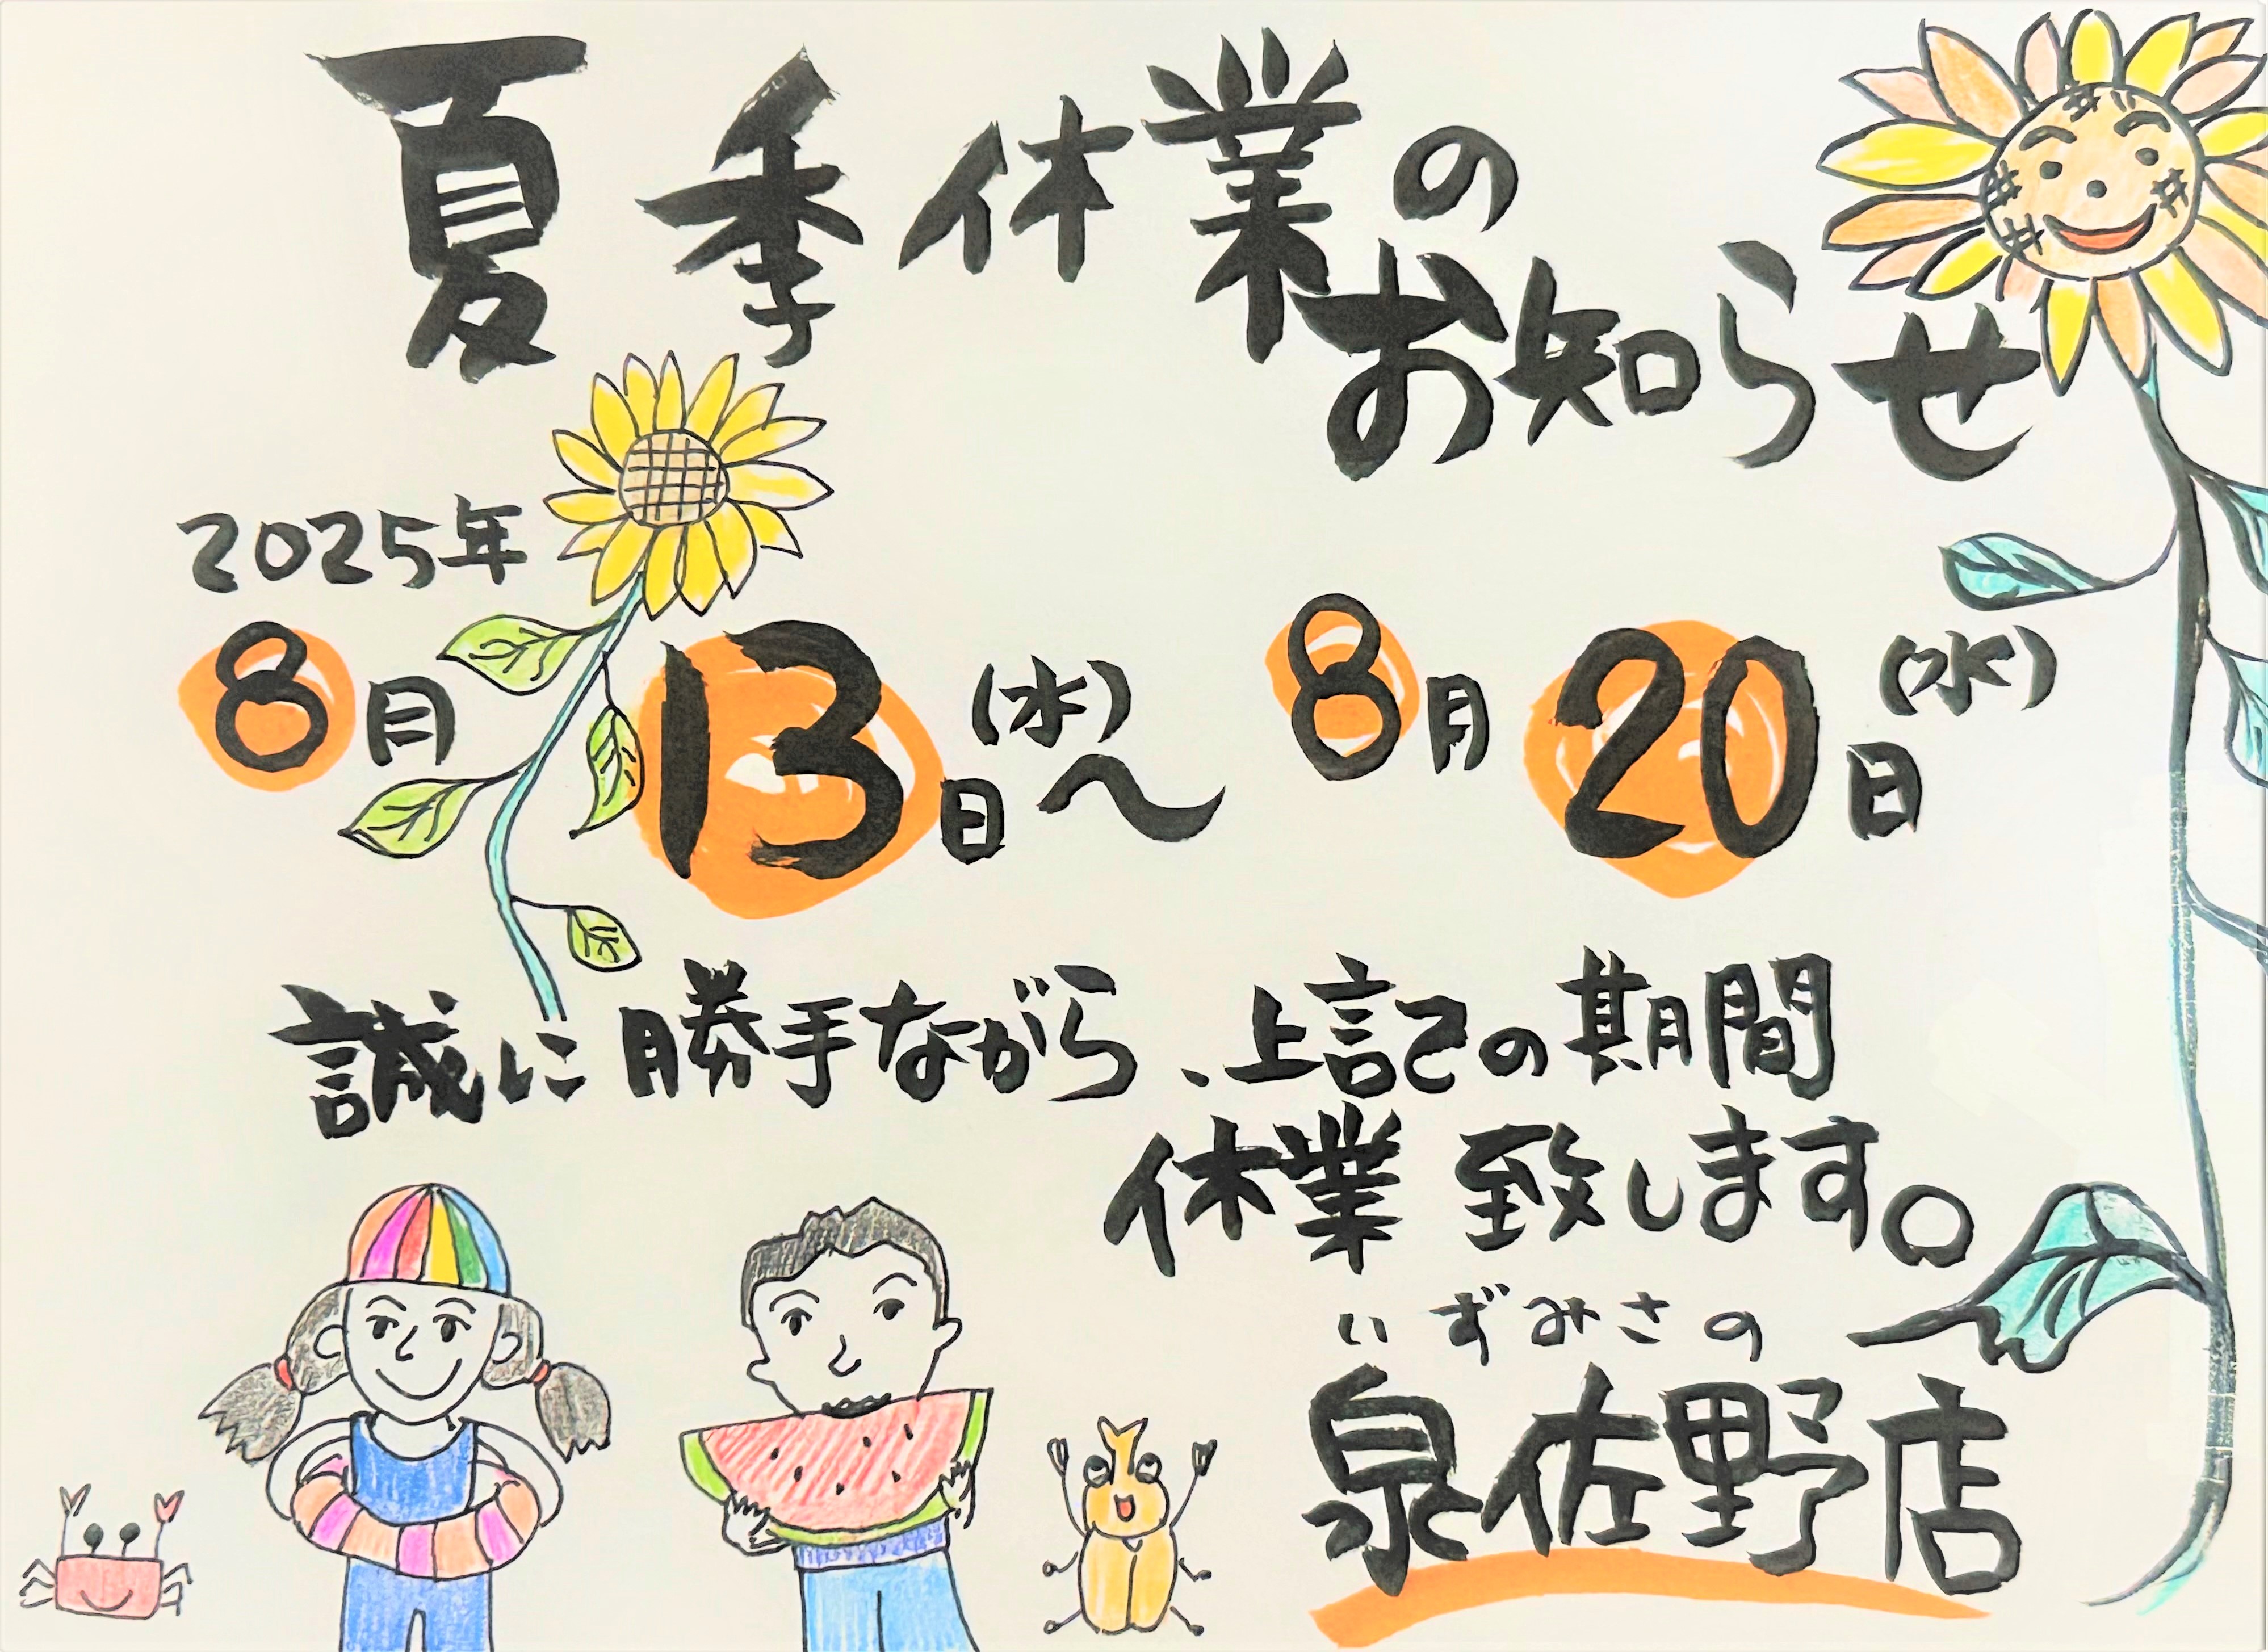 夏季休業の
お知らせ
2025年
8月13日(水)〜8月20日(水)
誠に勝手ながら、上記の期間
休業致します。
いずみさの
泉佐野店